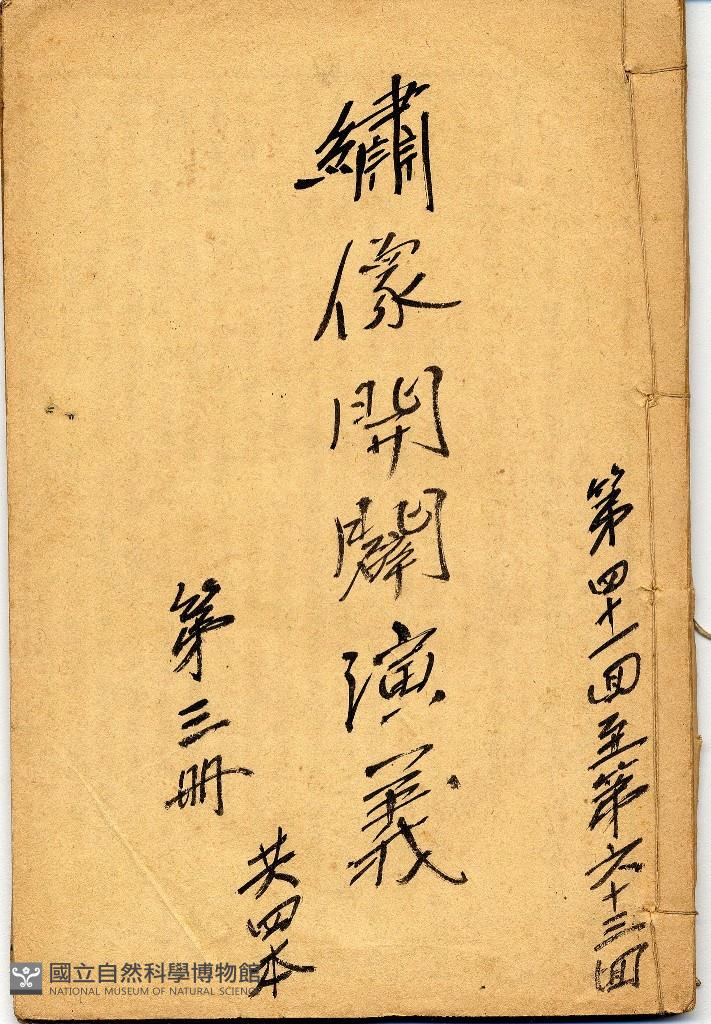 第四十一回至第六十三回
繡像開闢演義
第三册
共四本
國立自然科學博物館
NATIONAL MUSEUM OF NATURAL SCIENCE